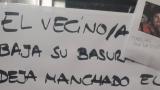 EL VECINO/A
BAJA SU BASUR
DEJA MANCHADO EL